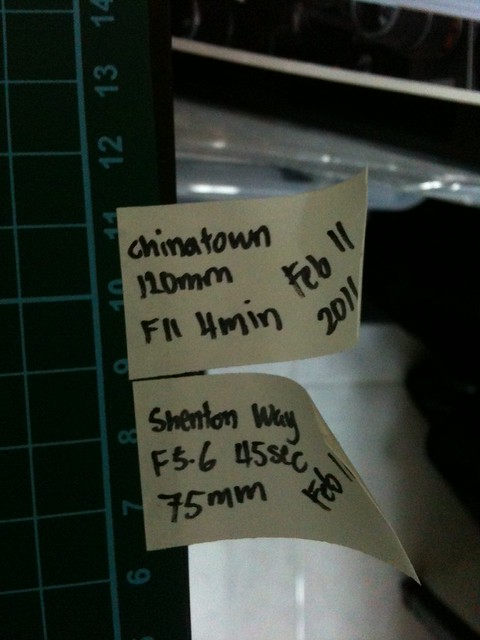 14
13
12
11
10
9
8
7
6
chinatown
120mm
F11 4min
Feb 11
2011
Shenton Way
F5.6 45sec
75mm
Feb 11